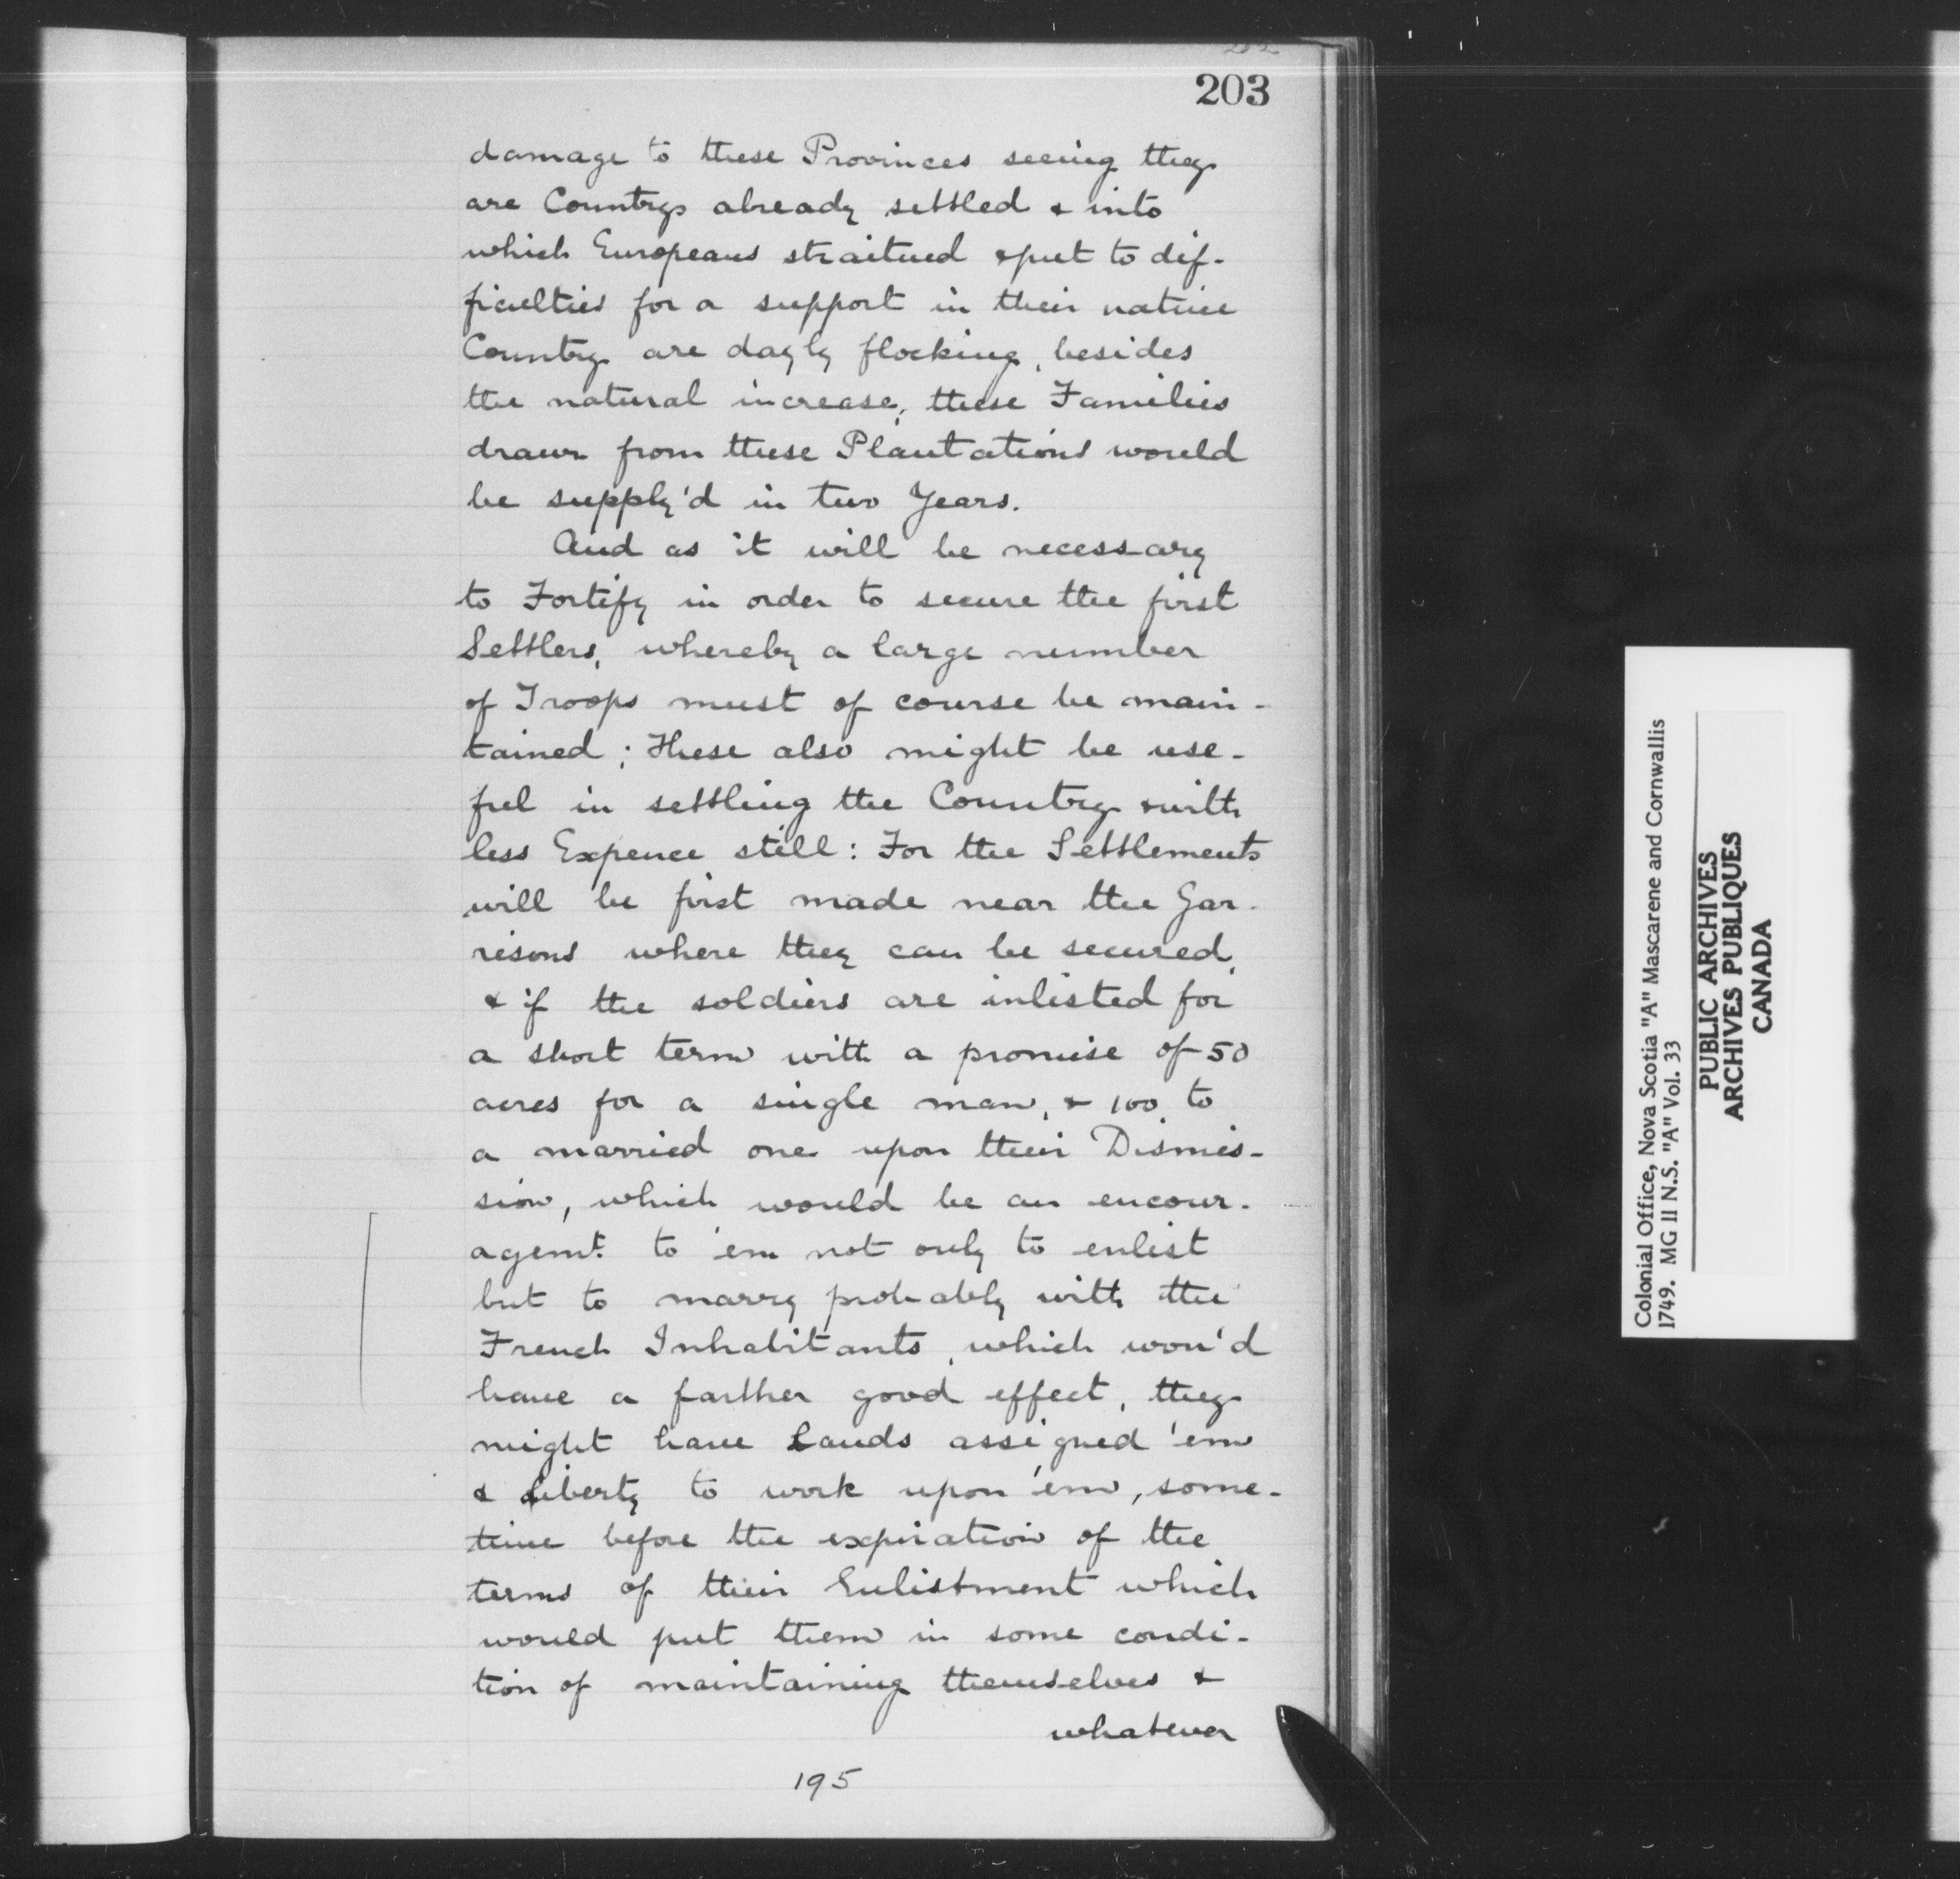 203
damage to these Provinces seeing they
are Countrys already settled & into
which Europeans straitned & put to dif-
ficulties for a support in their native
Country are dayly flocking, besides
the natural increase, these Families
drawn from these Plantations would
be supply'd in two Years.
And as it will be necessary
to Fortify in order to secure the first
Settlers, whereby a large number
of Troops must of course be main-
tained; These also might be use-
ful in settling the Country & with
less Expence still: For the Settlements
will be first made near the Gar-
risons where they can be secured,
& if the soldiers are inlisted for
a short term with a promise of 50
acres for a single man, & 100 to
a married one upon their Dismis-
sion, which would be an encour-
agemt. to 'em not only to enlist
but to marry probably with the
French Inhabitants, which wou'd
have a farther good effect, they
might have Lands assigned 'em
& Liberty to work upon 'em, some-
time before the expiration of the
terms of their Enlistment which
would put them in some condi-
tion of maintaining themselves &
whatever
195
Colonial Office, Nova Scotia "A" Mascarene and Cornwallis
1749. MG 11 N.S. "A" Vol. 33
PUBLIC ARCHIVES
ARCHIVES PUBLIQUES
CANADA